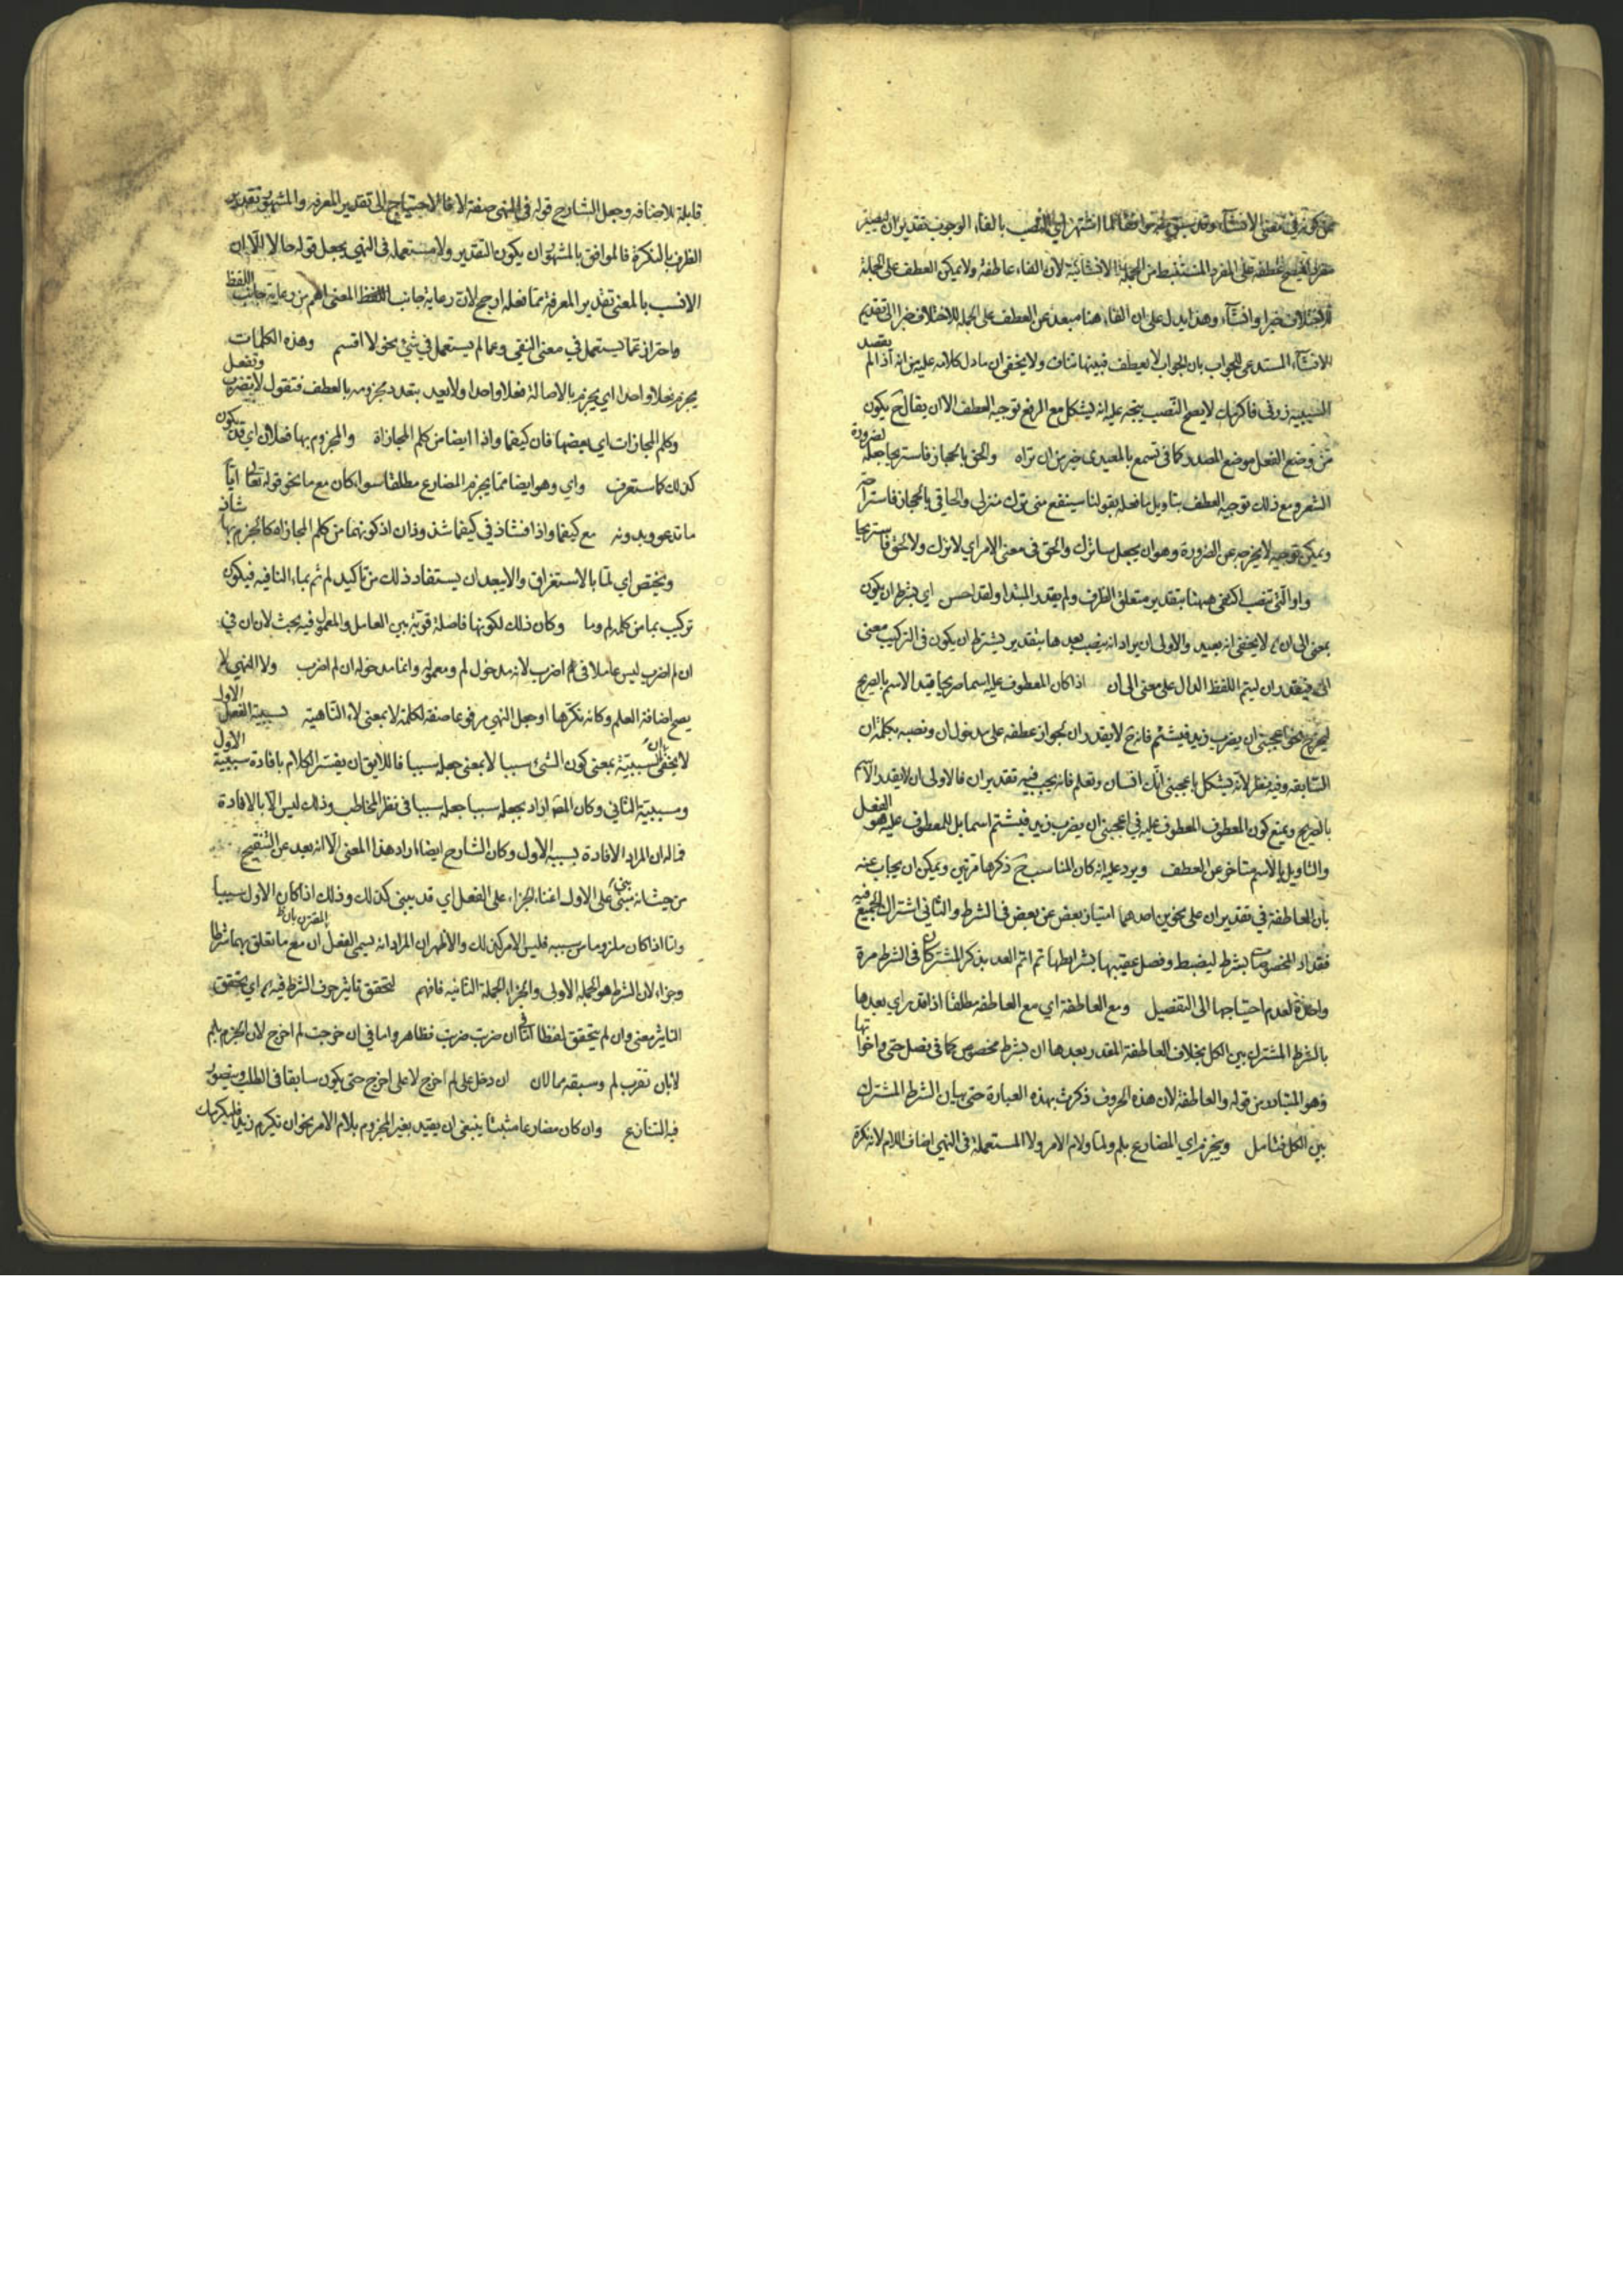 من كونه في معنى الانشاء وقد سبق انه موافقا لما اشتهر اي النصب بالفاء الوجوب تقدير ان ليصير
مفردا ليصح عطفه على المفرد المستنبط من الجملة الانشائية لان الفاء عاطفة ولا يمكن العطف على الجملة
لاختلاف خبرا وانشاء وهذا يدل على ان الفاء هنا مبعد عن العطف على الجملة للاختلاف خبرا الى تقديم
الانشاء المستدعي للجواب بان الجواب لا يعطف فبينهما تناف ولا يخفى ان ما دل كلامه عليه من انه اذا لم يقصد
السببية زرني فاكرمك لا يصح النصب يتجه عليه انه يشكل مع الرفع توجيه العطف الا ان يقال ح يكون
من وضع الفعل موضع المصدر كما في تسمع بالمعيدي خير من ان تراه والحق بالحجاز فاستريحا جعله لضرورة
الشعر ومع ذلك توجيه العطف بتاويل ما فعله بقولنا سينقع مني ترك منزلي والحاقي بالحجاز فاستراحة
ويمكن توجيه لا يخرجه عن الضرورة وهو ان يجعل ساترك والحق في معنى الامر اي لاترك ولالحق فاستريحا
واو التي تنصب اكتفى ههنا بتقدير متعلق الظرف ولم يقدر المبتدا ولقد احسن اي بشرط ان يكون
بمعنى الى ان لا يخفى انه بعيد والاولى ان يراد انه ينصب بعدها بتقدير بشرط ان يكون في التركيب معنى
الى فيقدر ان ليتم اللفظ الدال على معنى الى ان اذا كان المعطوف عليه اسما صريحا قيد الاسم بالصريح
ليخرج نحو اعجبني ان يضرب زيد فيشتم فانه ح لا يقدر ان لجواز عطفه على مدخول ان ونصبه بكلمة ان
السابقة وفيه نظر لانه يشكل باعجبني انك انسان وتعلم فانه يجب فيه تقدير ان فالاولى ان لا يقيد الاسم
بالصريح ويمنع كون المعطوف المعطوف عليه في اعجبني ان يضرب زيد فيشتم اسما بل المعطوف عليه هو الفعل
والتاويل بالاسم متاخر عن العطف ويرد عليه انه كان المناسب ح ذكرها مرتين ويمكن ان يجاب عنه
بان العاطفة في تقدير ان على نحوين احدهما امتياز بعض عن بعض في الشرط والثاني اشتراك الجميع فيه
فقد اد المخصوصات بشرط ليضبط وفصل عقيبها بشرائطها ثم اتم العد بذكر المشتركات في الشرط مرة
واحدة لعدم احتياجها الى التفصيل ومع العاطفة اي مع العاطفة مطلقا اذا قدر اي بعدها
بالشرط المشترك بين الكل بخلاف العاطفة المقدر بعدها ان بشرط مخصوص كما في فصل حتى واخواتها
وهو المتبادر من قوله والعاطفة لان هذه الحروف ذكرت بهذه العبارة حتى بيان الشرط المشترك
بين الكل فتامل وينجزم اي المضارع بلم ولما ولام الامر ولا المستعملة في النهي اضاف اللام لانه نكرة
قابلة للاضافه وجعل الشارح قوله في النهي صفة لا فالاحتياج الى تقدير المعرفه والمشهور تقدير
الظرف بالنكرة فالموافق بالمشهور ان يكون التقدير ولا مستعملة في النهي يجعل قوله حالا الا ان
الانسب بالمعنى تقدير المعرفة مما فعله ارجح لان رعاية جانب اللفظ المعنى اهم من رعاية جانب اللفظ
واحتراز عما يستعمل في معنى النفي وعما لم يستعمل في شيء نحو لا اقسم وهذه الكلمات
يجزم فعلا واحدا اي يجزم بالاصالة فعلا واحدا ولا بعد بتعدد مجزومه بالعطف فتقول لا تضرب وتفعل
وكلم المجازات اي بعضها فان كيفما واذا ايضا من كلم المجازاة والمجزوم بها فعلان اي قد يكون
كذلك كما ستعرف واي وهو ايضا مما يجزم المضارع مطلقا سواء كان مع ما نحو قوله تعالى ايا
ما تدعو وبدونه مع كيفما واذا فشاذ في كيفما شذوذان اذ كونهما من كلم المجازاة كالجزم بها شاذ
ويختص اي لما بالاستغراق والا يبعد ان يستفاد ذلك من تاكيد لم ثم بماء النافيه فيكون
تركيب بما من كلمه لم وما وكان ذلك لكونها فاصلة قوية بين العامل والمعمول فيه بحث لان ان في
ان لم اضرب ليس عاملا في اضرب لانه مدخول لم ومعموله وانما مدخوله ان لم اضرب ولا النهي لا
يصح اضافة العلم وكانه نكرها او جعل النهي مرفوعا صفة لكلمة لا بمعنى لاء الناهية لسببية الفعل الاول
لا يخفى ان السببية بمعنى كون الشيء سببا لا بمعنى جعله سببا فاللايق ان يفسر الكلام بافادة سببية الاول
ومسببية الثاني وكان المص اراد بجعله سببا جعله سببا في نظر المخاطب وذلك ليس الا بالافادة
فماله ان المراد الافادة لسببيه الاول وكان الشارح ايضا اراد هذا المعنى الا انه بعيد عن التنقيح
من حيث انه مبني على الاول اعتناء الجزاء على الفعل اي قد يبنى كذلك وذلك اذا كان الاول سببا
ولما اذا كان ملزوما من سببه فليس الامر كذلك والاظهر ان المراد انه يسمى الفعل المقترن بان مع ما تعلق بهما شرطا
وجزاء لان الشرط هو الجملة الاولى والجزاء الجملة الثانيه فافهم لتحقق تاثير حرف الشرط فيه اي يتحقق
التاثير معنى وان لم يتحقق لفظا اما في ان ضربت ضربت فظاهر واما في ان خرجت لم اخرج لان الجزم بلم
لا بان تقرب لم وسبقه بما لان ان دخل على لم اخرج لا على اخرج حتى يكون سابقا في الطلب ويتصور
فيه التنازع وان كان مضارعا مثبتا ينبغي ان يقيد بغير المجزوم بلام الامر نحو ان تكرم زيدا فليكرمك